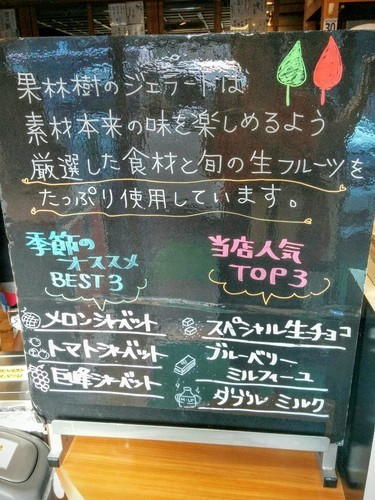 果林樹のジェラートは
素材本来の味を楽しめるよう
厳選した食材と旬の生フルーツを
たっぷり使用しています。
季節の
オススメ
BEST3
メロンシャーベット
トマトシャーベット
巨峰シャーベット
当店人気
TOP3
スペシャル生チョコ
ブルーベリー
ミルフィーユ
ダブルミルク
30